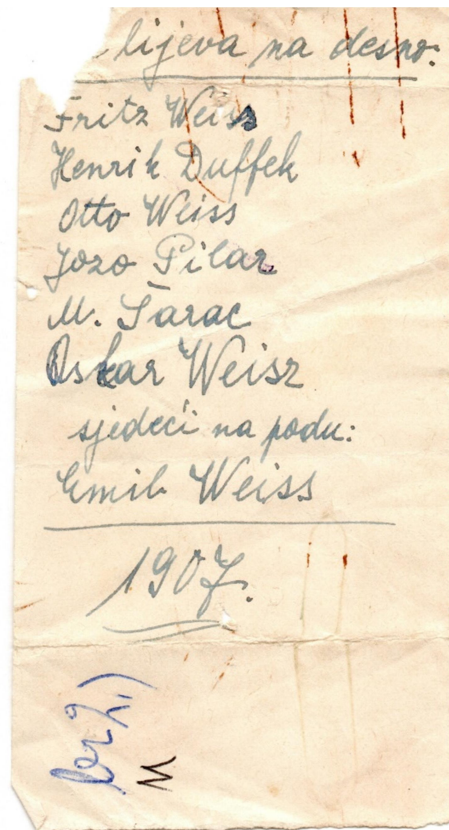 lijeva na desno:
Fritz Weiss
Henrik Duffek
Otto Weiss
Jozo Pilar
M. Šarac
Oskar Weisz
sjedeći na podu:
Emil Weiss
1907.